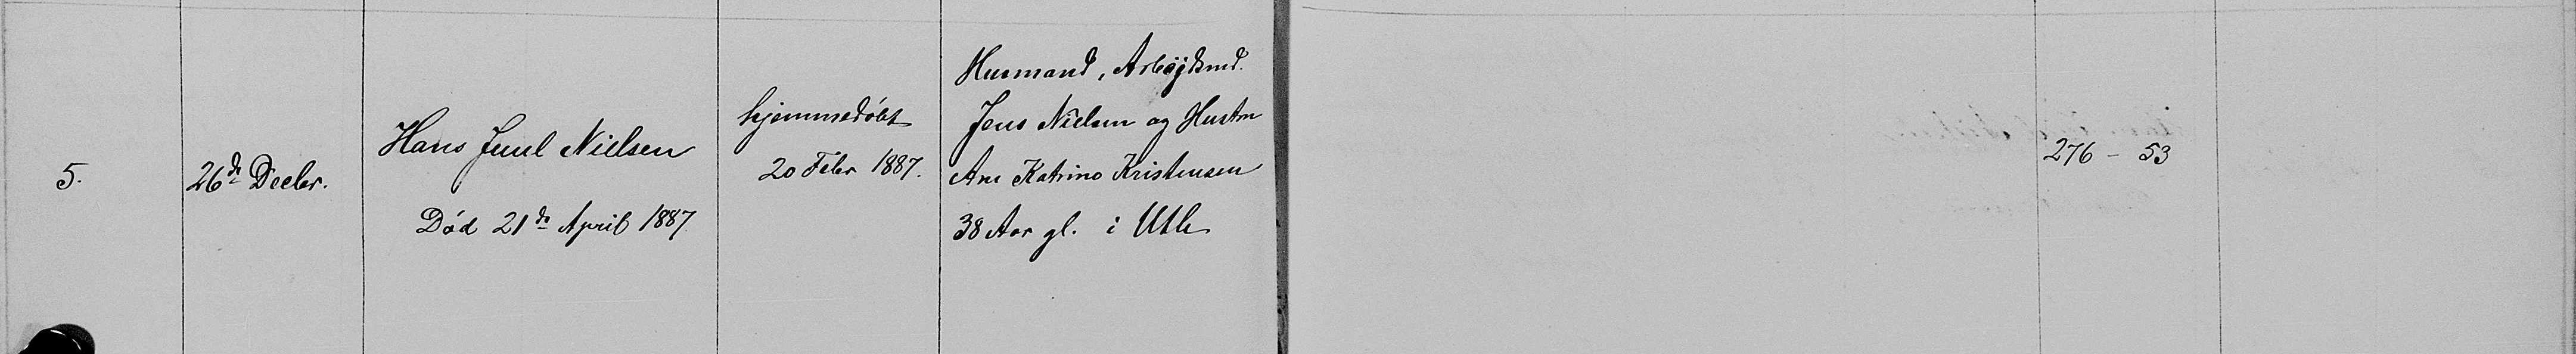 5.
26de Decbr.
Hans Juul Nielsen
Död 21de April 1887
hjemmedöbt
20 Febr 1887.
Husmand, Arbejdsmd.
Jens Nielsen og Hustru
Ane Katrine Kristensen
38 Aar gl. i
276 - 53